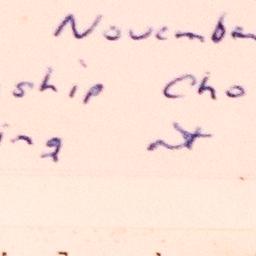 November
ship Cho
ing at